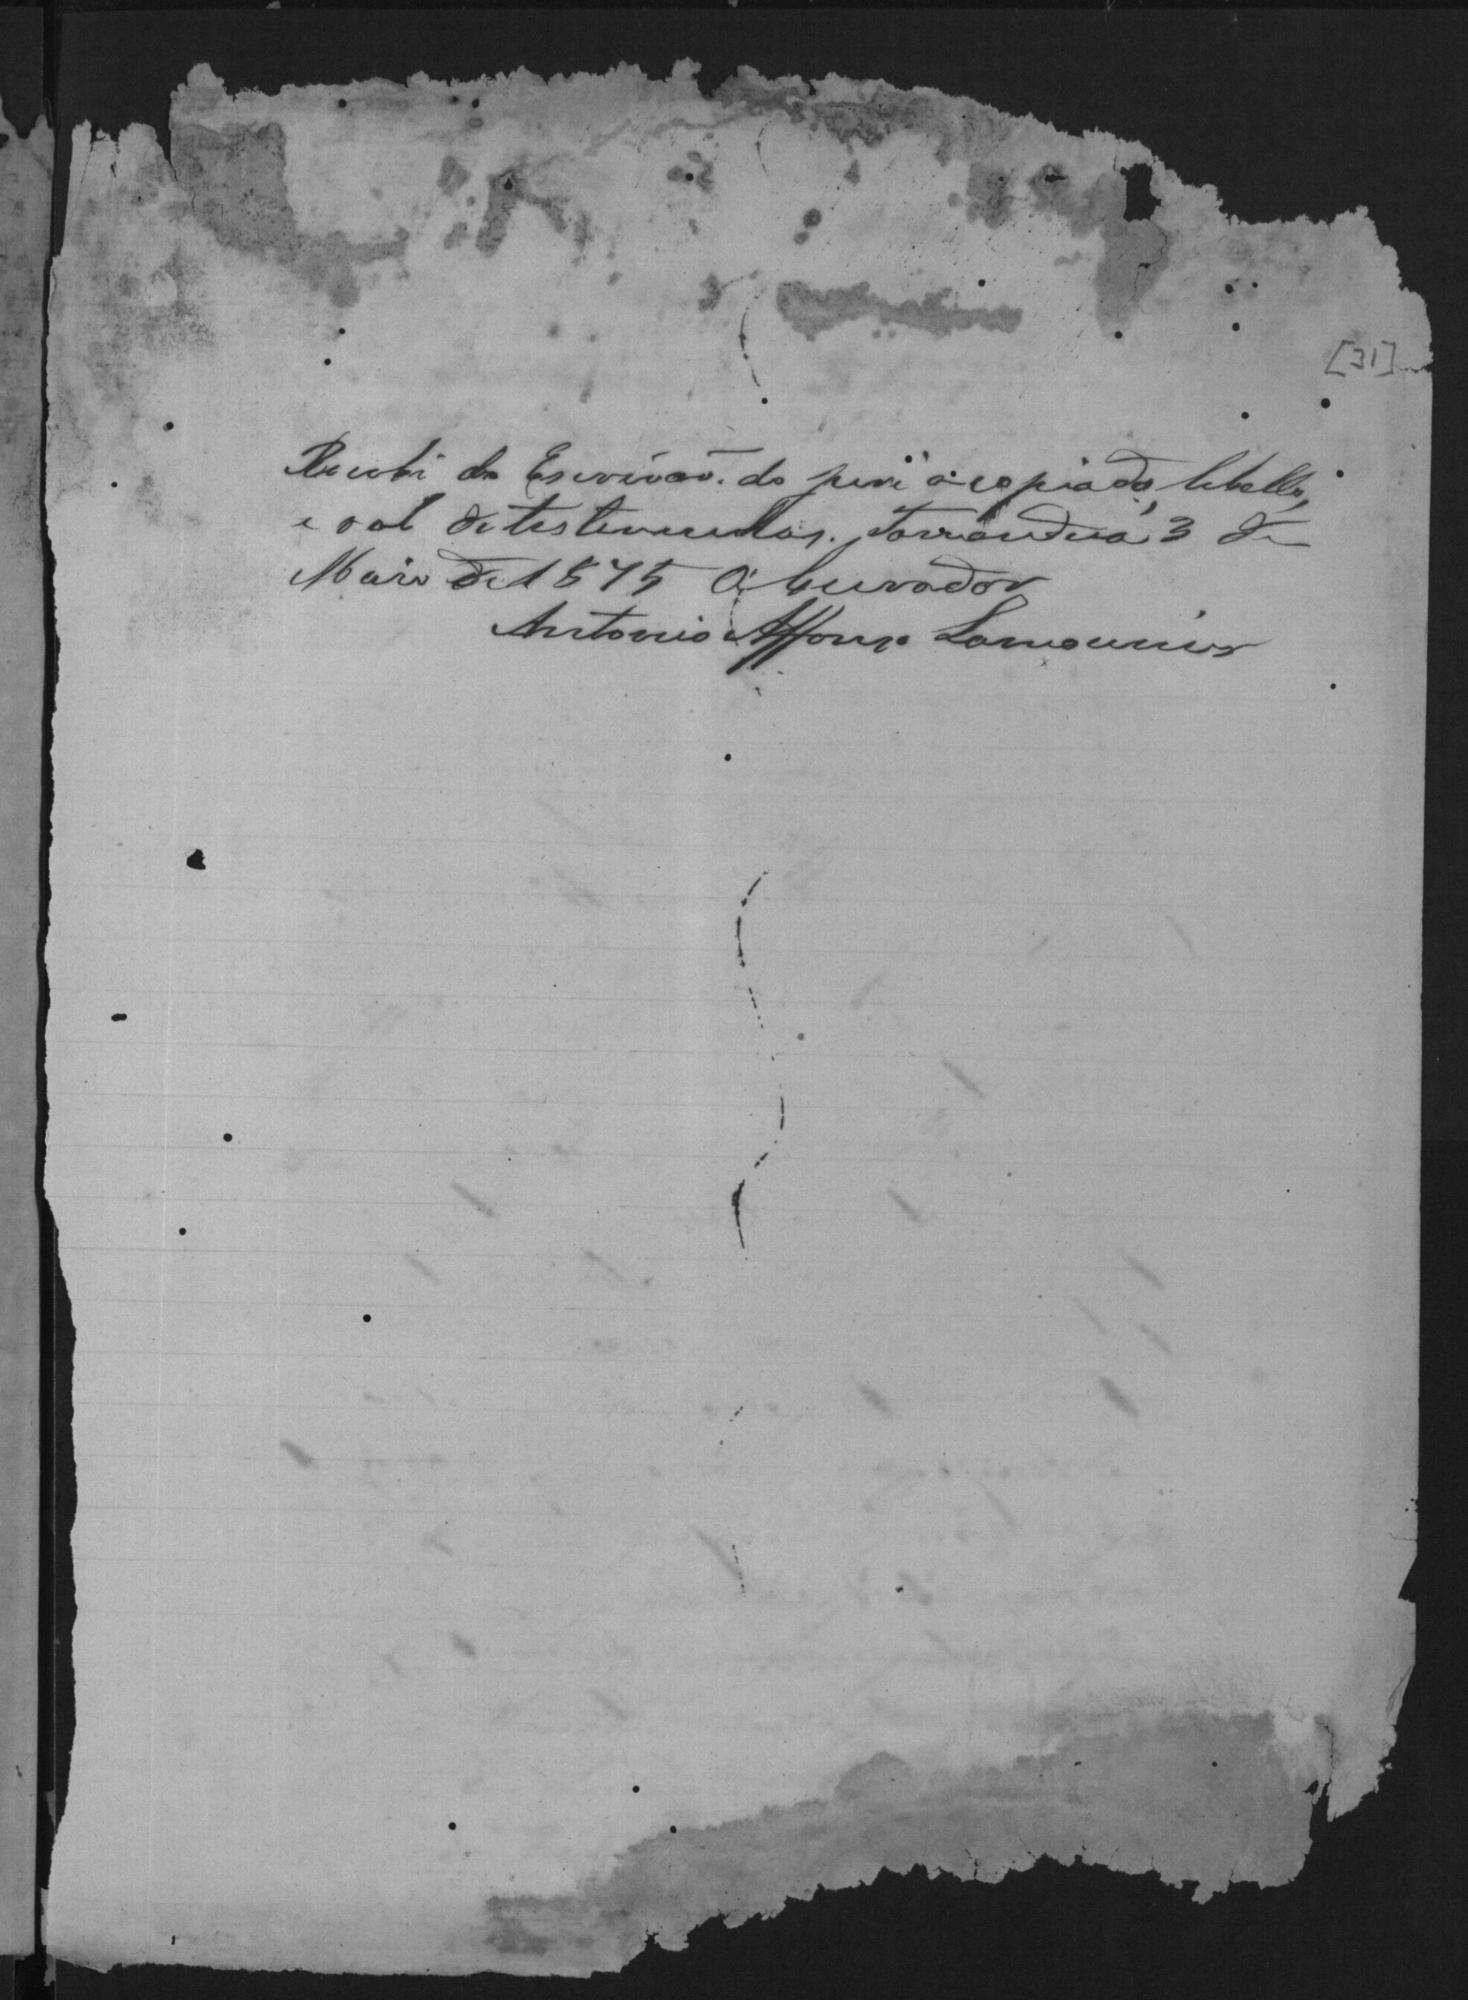 [31]
Recebi do Escrivaõ do juri a copia do libello,
e rol de testemunhas. 3 de
Maio de 1875 O Curador
Antonio Affonso Lamounier